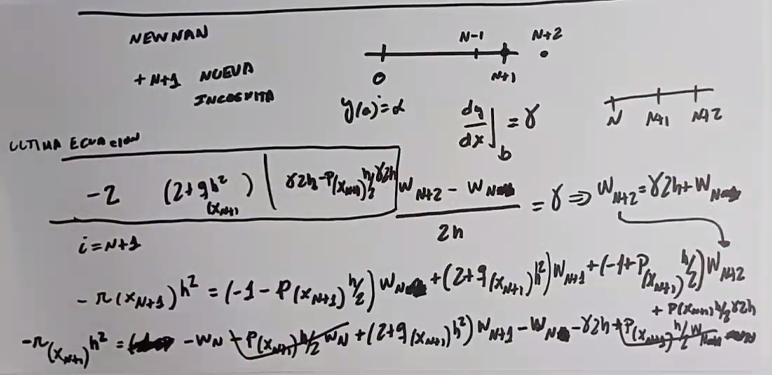 NEWNAN
+ N+1 NUEVA
INCOGNITA
N-1 N+2
0 N+1
y(a)=α dy/dx]_b = γ
N N+1 N+2
ULTIMA ECUACION
-2 (2+qh²(x_{N+1})) | γ2h-P(x_{N+1})h/2 γ2h
(W_{N+2} - W_N)/2h = γ ⇒ W_{N+2} = γ2h + W_N
i=N+1
-r(x_{N+1})h² = (-1 - P(x_{N+1})h/2) W_N + (2+q(x_{N+1})h²) W_{N+1} + (-1+P(x_{N+1})h/2) W_{N+2}
+ P(x_{N+1})h/2 γ2h
-r(x_{N+1})h² = -W_N - P(x_{N+1})h/2 W_N + (2+q(x_{N+1})h²) W_{N+1} - W_N - γ2h + P(x_{N+1})h/2 W_N